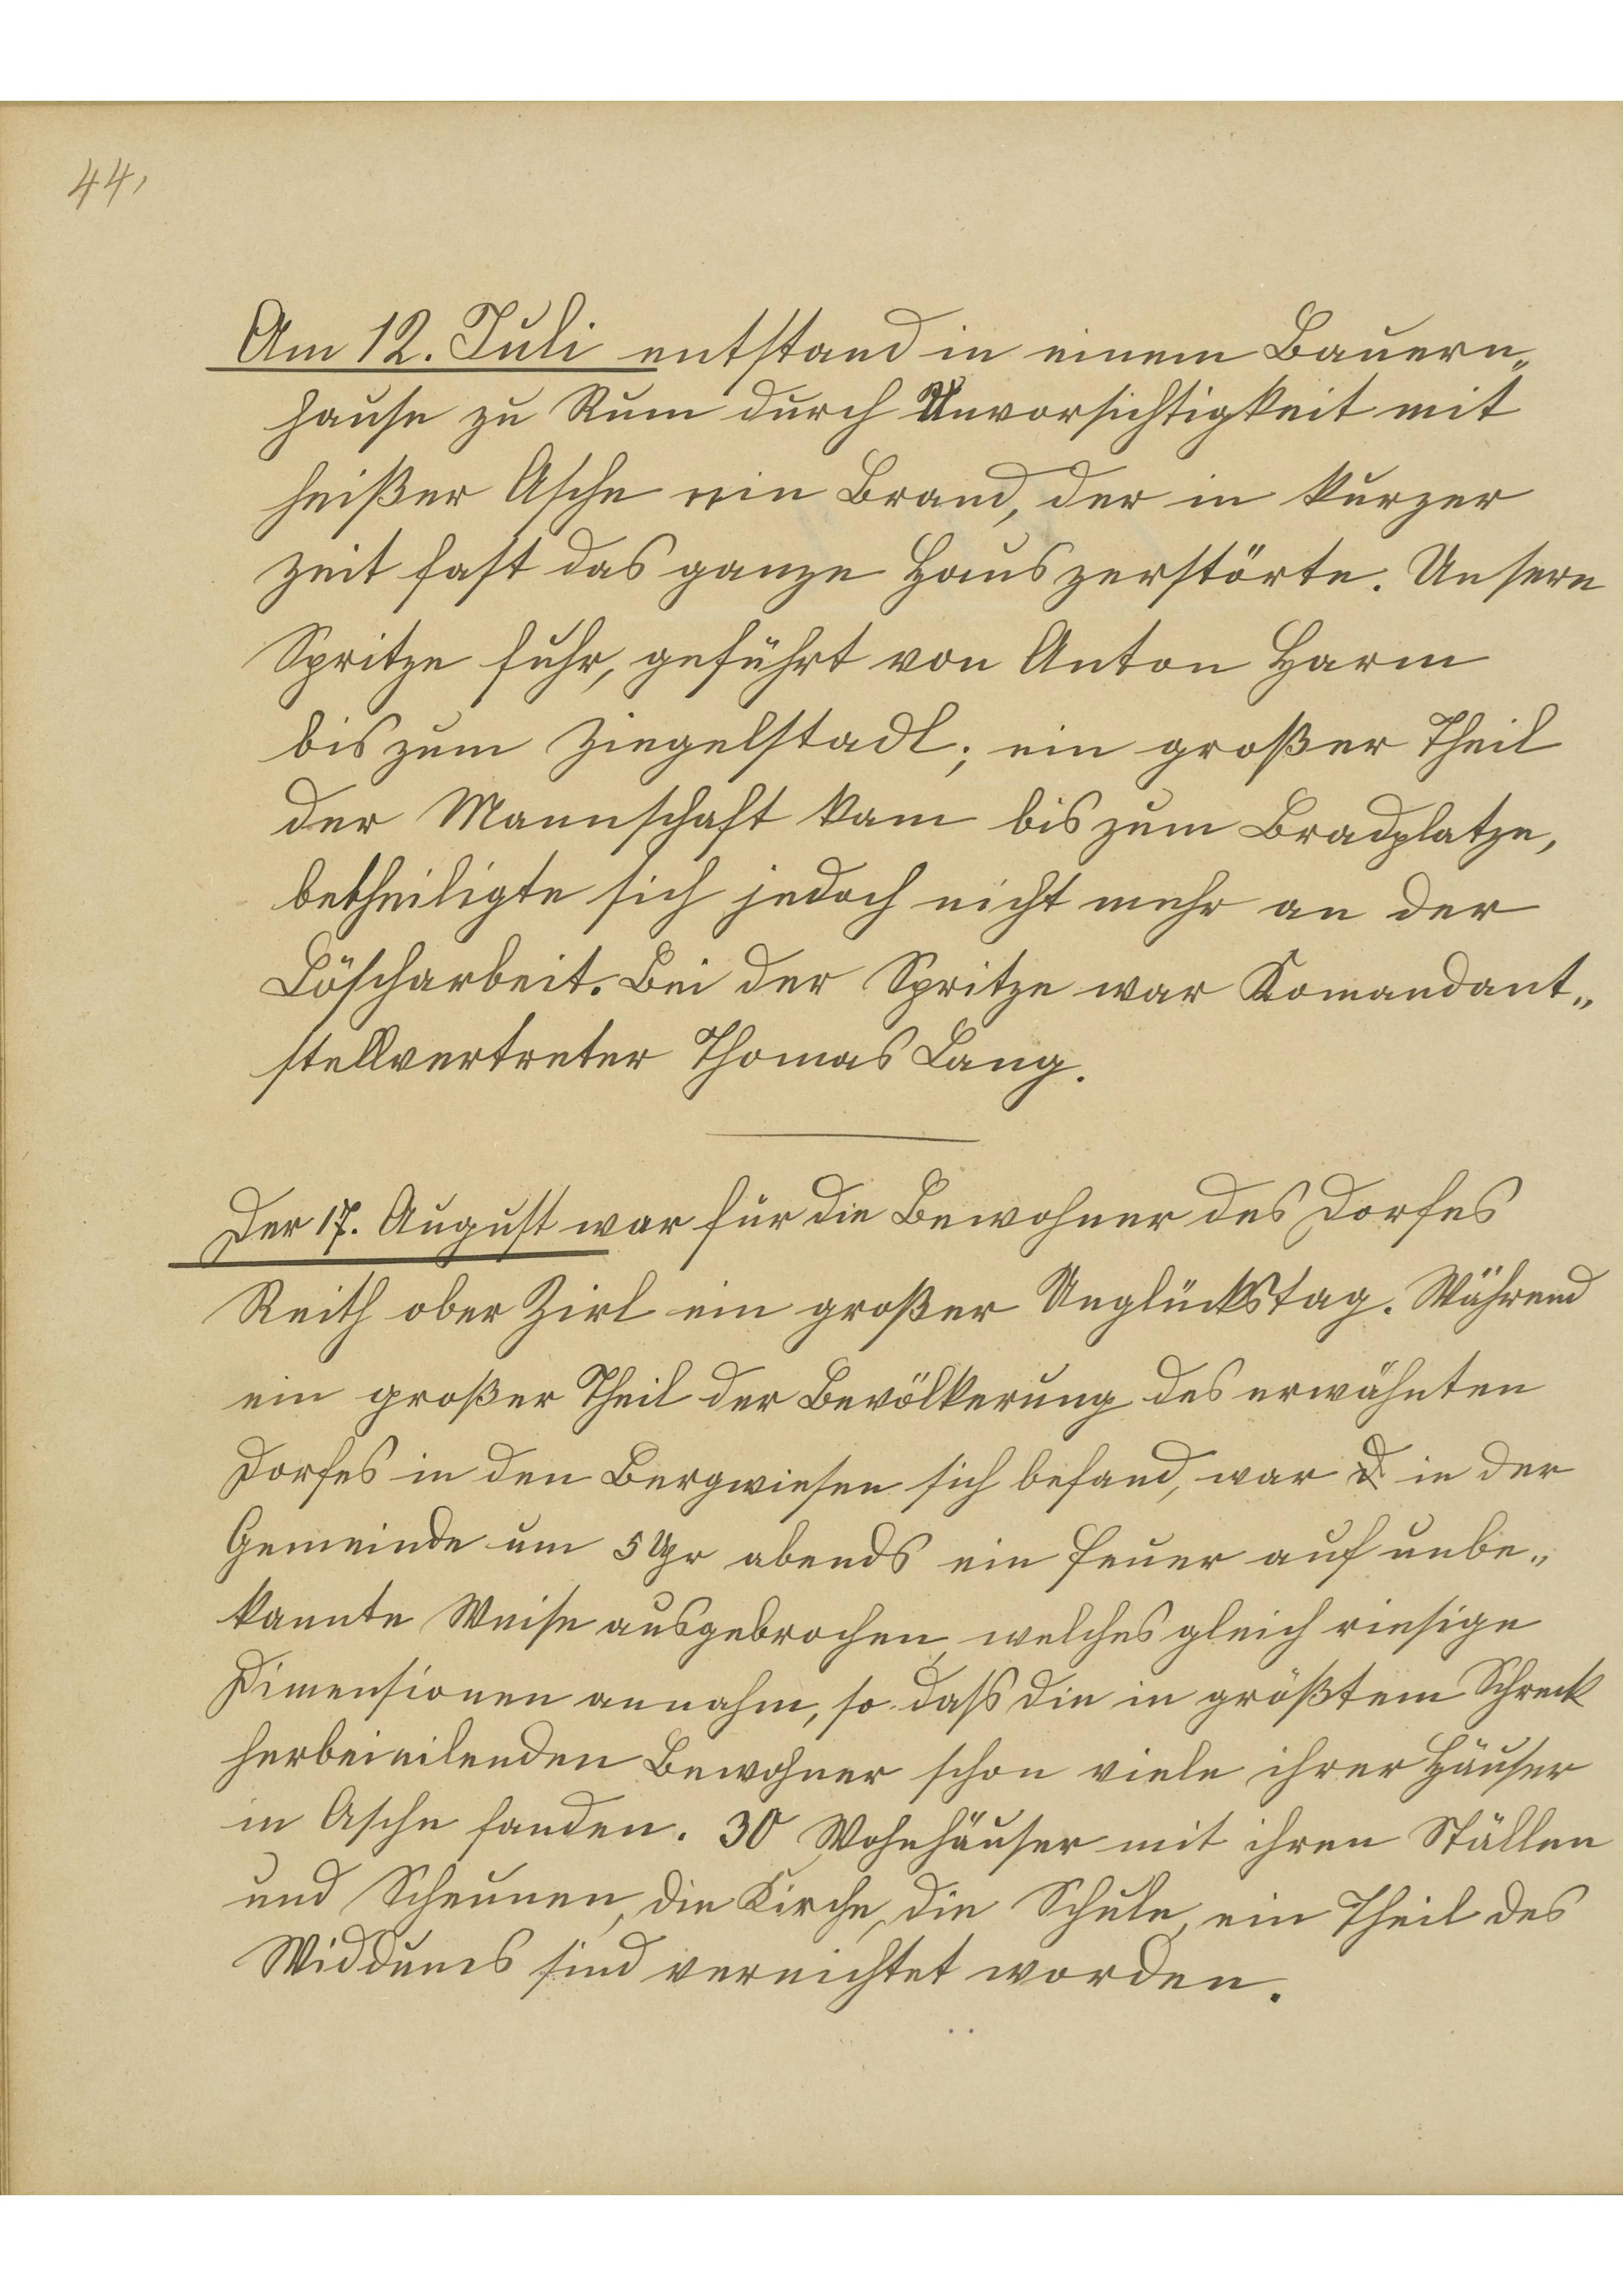 44,
Am 12. Juli entstand in einem Bauern„
hause zu Rum durch Unvorsichtigkeit mit
heißer Asche ein Brand, der in kurzer
Zeit fast das ganze Haus zerstörte. Unsere
Spritze fuhr, geführt von Anton Harm
bis zum Ziegelstadl; ein großer Theil
der Mannschaft kam bis zum Bradplatze,
betheiligte sich jedoch nicht mehr an der
Löscharbeit. Bei der Spritze war Komandant„
stellvertreter Thomas Lang.
Der 17. August war für die Bewohner des Dorfes
Reith ober Zirl ein großer Unglückstag. Während
ein großer Theil der Bevölkerung des erwähnten
Dorfes in den Bergwiesen sich befand, war in der
Gemeinde um 5 Uhr abends ein Feuer auf unbe„
kannte Weise ausgebrochen, welches gleich riesige
Dimensionen annahm, so daß die in größtem Schreck
herbeieilenden Bewohner schon viele ihrer Häuser
in Asche fanden. 30 Wohnhäuser mit ihren Ställen
und Scheunen, die Kirche, die Schule, ein Theil des
Widdums sind vernichtet worden.